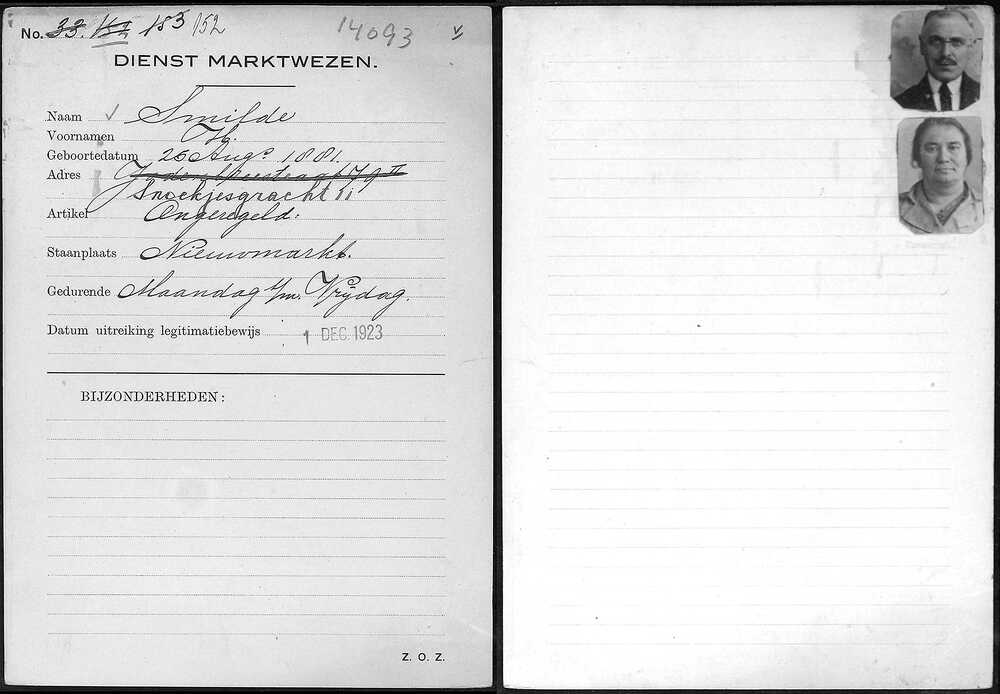 No. 33. 152 153 152 14093 v
DIENST MARKTWEZEN.
Naam Smilde
Voornamen Th.
Geboortedatum 26 Augs. 1881.
Adres Jodenbreestraat 79 II
Snoekjesgracht 11
Artikel Ongeregeld.
Staanplaats Nieuwmarkt.
Gedurende Maandag t/m. Vrijdag.
Datum uitreiking legitimatiebewijs 1 DEC. 1923
BIJZONDERHEDEN:
Z. O. Z.